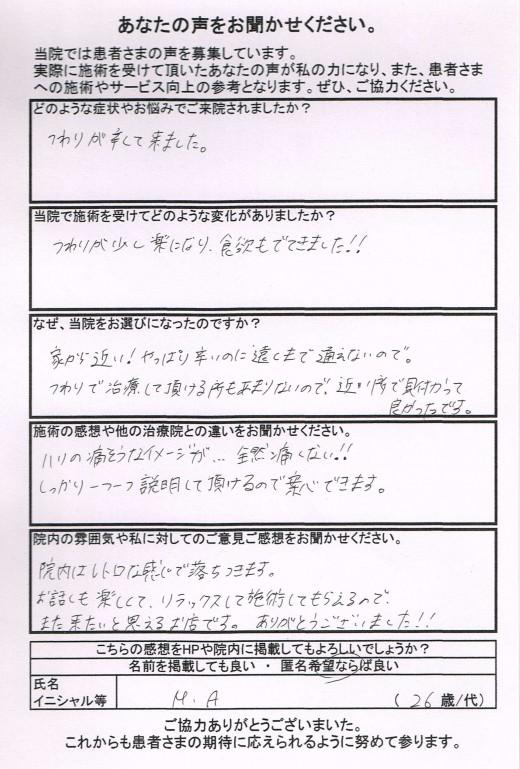 あなたの声をお聞かせください。
当院では患者さまの声を募集しています。
実際に施術を受けて頂いたあなたの声が私の力になり、また、患者さま
への施術やサービス向上の参考となります。ぜひ、ご協力ください。
どのような症状やお悩みでご来院されましたか？
つわりが辛くて来ました。
当院で施術を受けてどのような変化がありましたか？
つわりが少し楽になり、食欲もでてきました!!
なぜ、当院をお選びになったのですか？
家から近い!やっぱり辛いのに遠くまで通えないので。
つわりで治療して頂ける所もあまりないので、近い所で見付かって
良かったです。
施術の感想や他の治療院との違いをお聞かせください。
ハリの痛そうなイメージが…全然痛くない!!
しっかり一つ一つ説明して頂けるので安心できます。
院内の雰囲気や私に対してのご意見ご感想をお聞かせください。
院内はレトロな感じで落ちつきます。
お話しも楽しくて、リラックスして施術してもらえるので、
また来たいと思えるお店です。ありがとうございました!!
こちらの感想をHPや院内に掲載してもよろしいでしょうか？
名前を掲載しても良い ・ 匿名希望ならば良い
氏名
イニシャル等 M.A (26 歳/代)
ご協力ありがとうございまいた。
これからも患者さまの期待に応えられるように努めて参ります。